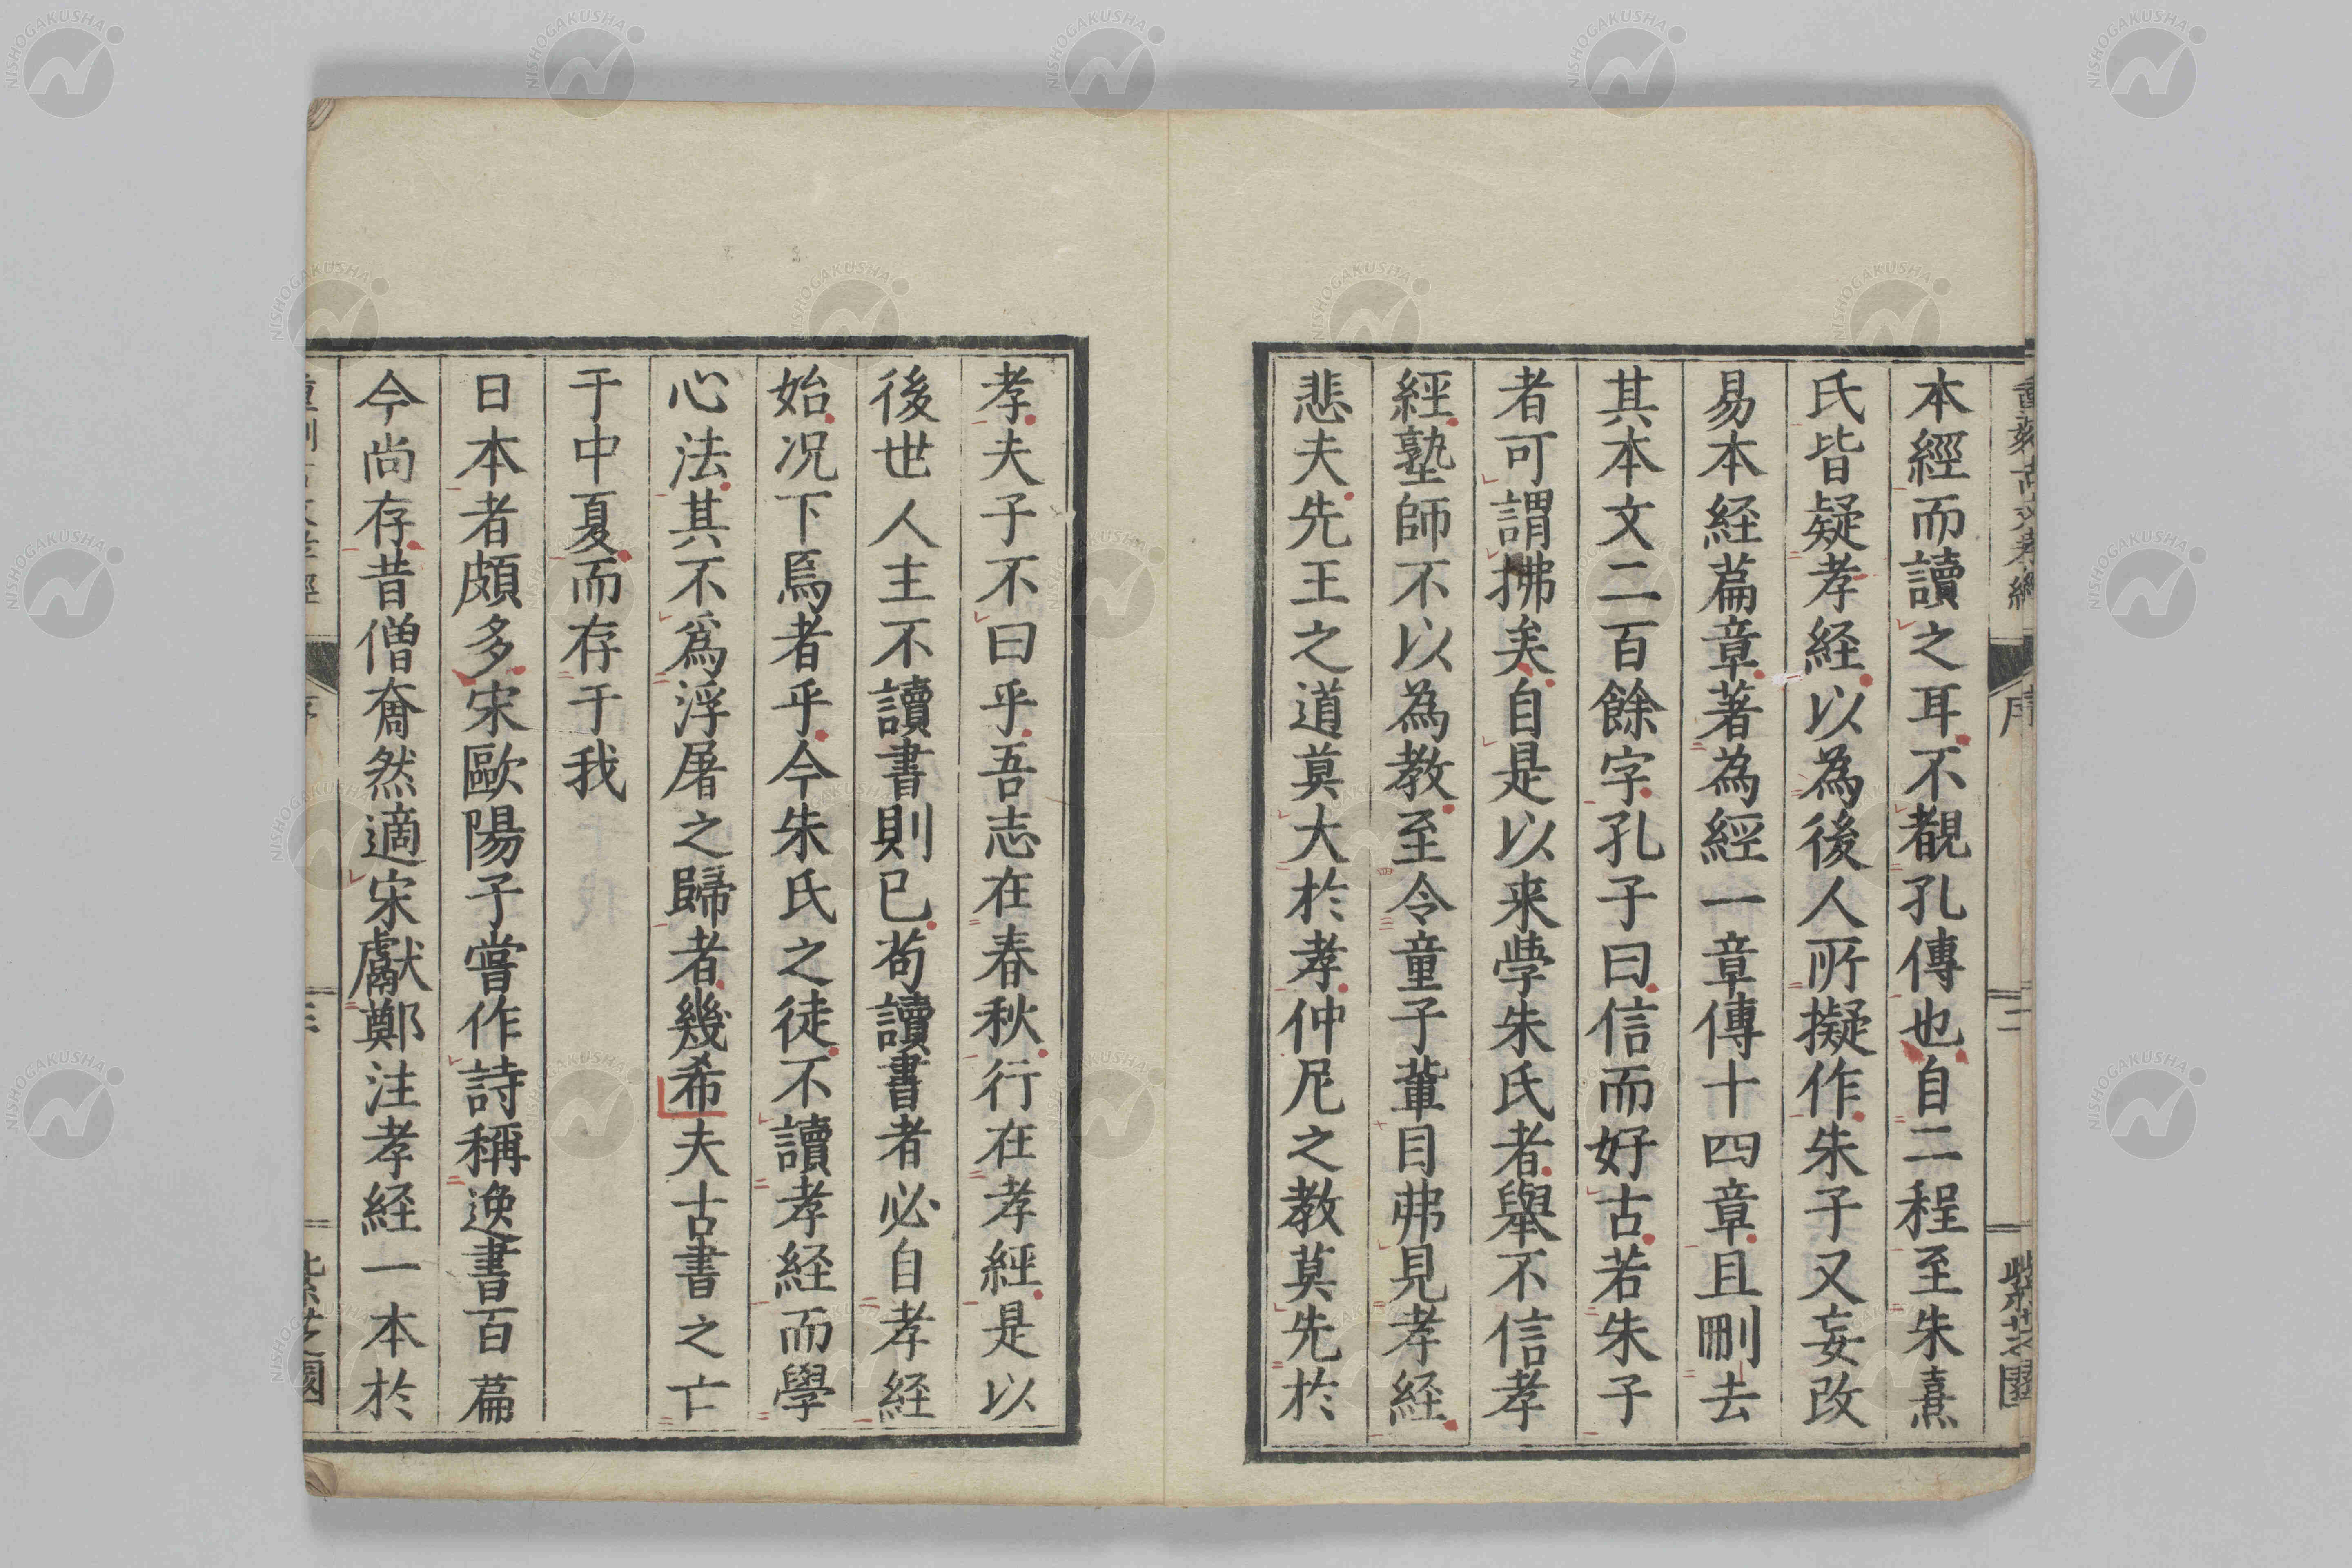 本經而讀之耳不覩孔傳也自二程至朱熹
氏皆疑孝経以為後人所擬作朱子又妄改
易本経篇章著為經一章傳十四章且刪去
其本文二百餘字孔子曰信而好古若朱子
者可謂拂矣自是以来學朱氏者舉不信孝
經塾師不以為教至令童子輩目弗見孝経
悲夫先王之道莫大於孝仲尼之教莫先於
孝夫子不曰乎吾志在春秋行在孝經是以
後世人主不讀書則已苟讀書者必自孝経
始况下焉者乎今朱氏之徒不讀孝経而學
心法其不爲浮屠之歸者幾希夫古書之亡
于中夏而存于我
日本者頗多宋歐陽子嘗作詩稱逸書百篇
今尚存昔僧奝然適宋獻鄭注孝経一本於
序
二
紫芝園
NISHOGAKUSHA